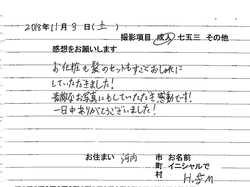 2018年11月3日(土)
撮影項目 成人 七五三 その他
感想をお願いします
お化粧も髪のセットもすごくおしゃれに
していただきました!
素敵なお写真にもしていただき感動です!
一日中ありがとうございました!
お住まい 河内 市 お名前
町 イニシャルで
村 H.S